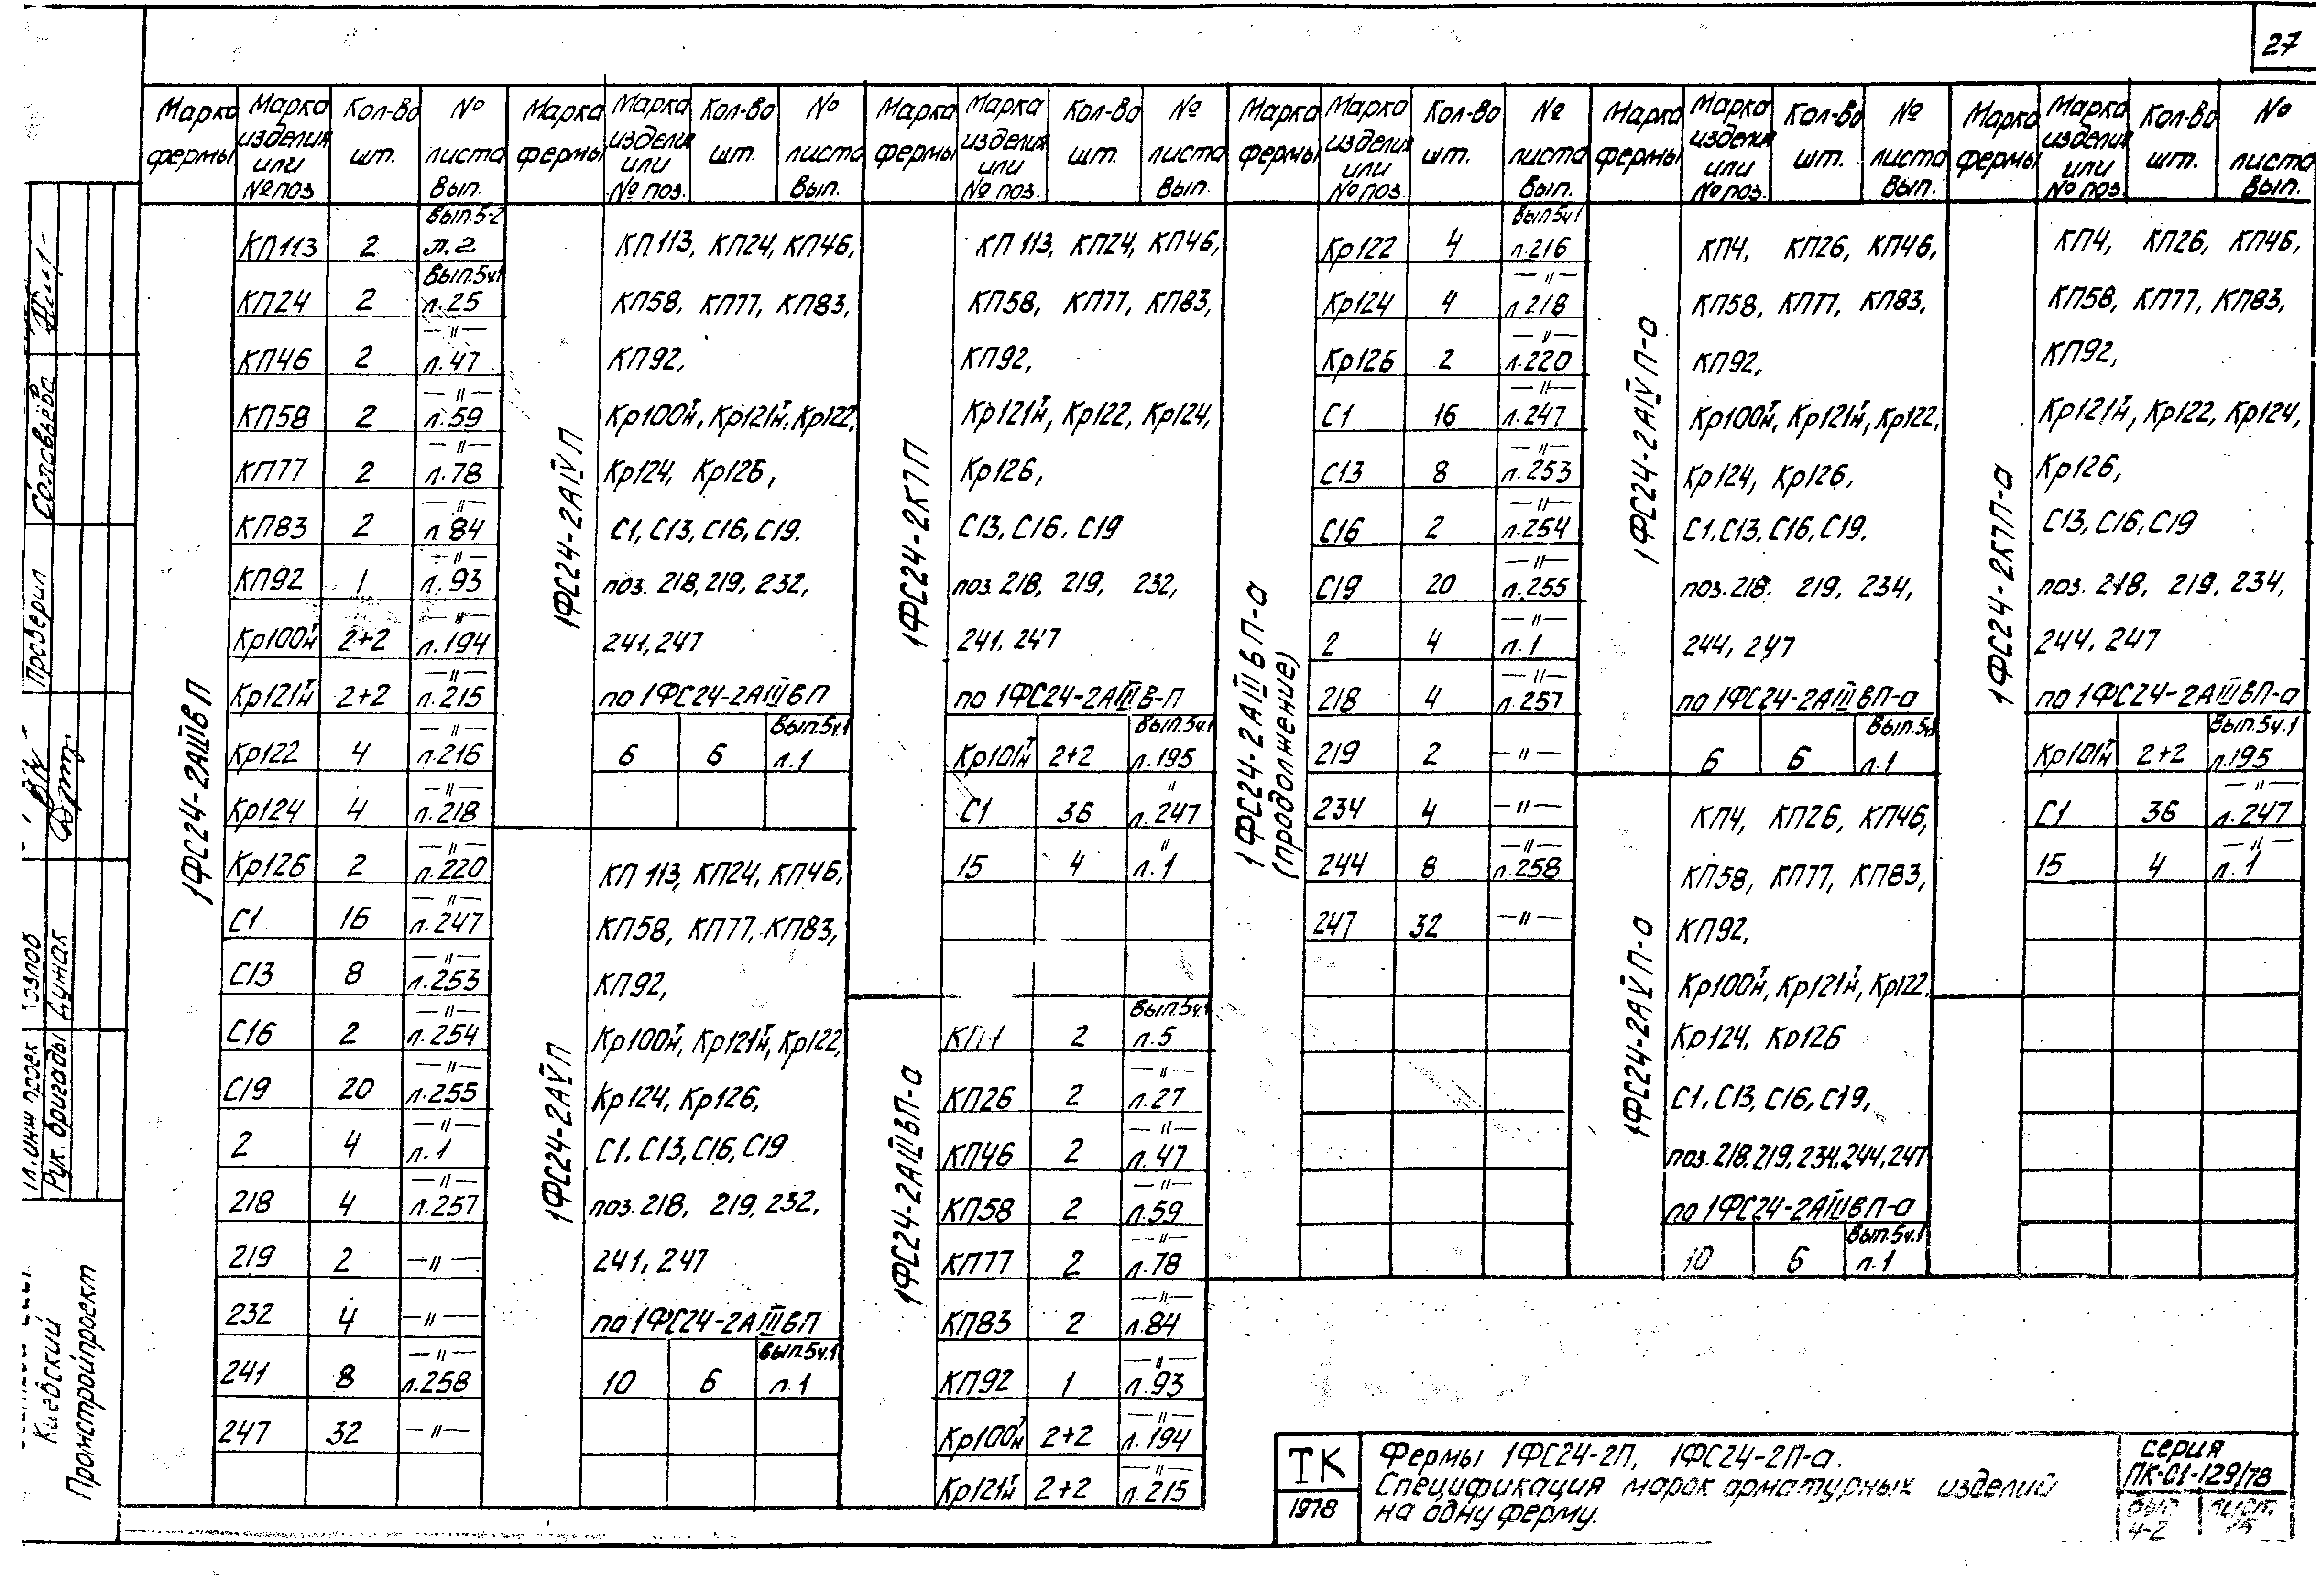 27
Марка фермы | Марка изделия или № поз. | Кол-во шт. | № листа вып.
Марка фермы | Марка изделия или № поз. | Кол-во шт. | № листа вып.
Марка фермы | Марка изделия или № поз. | Кол-во шт. | № листа вып.
Марка фермы | Марка изделия или № поз. | Кол-во шт. | № листа вып.
Марка фермы | Марка изделия или № поз. | Кол-во шт. | № листа вып.
Марка фермы | Марка изделия или № поз. | Кол-во шт. | № листа вып.
1ФС24-2АIIIвП
КП113 2 Вып.5-2 л.2
КП24 2 Вып.5ч1 л.25
КП46 2 —"— л.47
КП58 2 —"— л.59
КП77 2 —"— л.78
КП83 2 —"— л.84
КП92 1 —"— л.93
Кр100тн 2+2 —"— л.194
Кр121тн 2+2 —"— л.215
Кр122 4 —"— л.216
Кр124 4 —"— л.218
Кр126 2 —"— л.220
С1 16 —"— л.247
С13 8 —"— л.253
С16 2 —"— л.254
С19 20 —"— л.255
2 4 —"— л.1
218 4 —"— л.257
219 2 —"—
232 4 —"—
241 8 —"— л.258
247 32 —"—
1ФС24-2АIVП
КП113, КП24, КП46,
КП58, КП77, КП83,
КП92,
Кр100тн, Кр121тн, Кр122,
Кр124, Кр126,
С1, С13, С16, С19.
поз. 218, 219, 232,
241, 247
по 1ФС24-2АIIIвП
6 6 Вып.5ч.1 л.1
1ФС24-2АVП
КП113, КП24, КП46,
КП58, КП77, КП83,
КП92,
Кр100тн, Кр121тн, Кр122,
Кр124, Кр126,
С1, С13, С16, С19
поз. 218, 219, 232,
241, 247
по 1ФС24-2АIIIвП
10 6 Вып.5ч.1 л.1
1ФС24-2К7П
КП113, КП24, КП46,
КП58, КП77, КП83,
КП92,
Кр121тн, Кр122, Кр124,
Кр126,
С13, С16, С19
поз 218, 219, 232,
241, 247
по 1ФС24-2АIIIв-П
Кр101тн 2+2 Вып.5ч.1 л.195
С1 36 " л.247
15 4 " л.1
1ФС24-2АIIIвП-а
2 Вып.5ч.1 л.5
КП26 2 —"— л.27
КП46 2 —"— л.47
КП58 2 —"— л.59
КП77 2 —"— л.78
КП83 2 —"— л.84
КП92 1 —"— л.93
Кр100тн 2+2 —"— л.194
Кр121тн 2+2 —"— л.215
1ФС24-2АIIIвП-а
(продолжение)
Кр122 4 Вып5ч1 л.216
Кр124 4 —"— л218
Кр126 2 —"— л.220
С1 16 —"— л.247
С13 8 —"— л.253
С16 2 —"— л.254
С19 20 —"— л.255
2 4 —"— л.1
218 4 —"— л.257
219 2 —"—
234 4 —"—
244 8 —"— л.258
247 32 —"—
1ФС24-2АIVП-а
КП4, КП26, КП46,
КП58, КП77, КП83,
КП92,
Кр100тн, Кр121тн, Кр122,
Кр124, Кр126,
С1, С13, С16, С19.
поз. 218. 219, 234,
244, 247
по 1ФС24-2АIIIвП-а
6 6 Вып.5ч1 л.1
1ФС24-2АVП-а
КП4, КП26, КП46,
КП58, КП77, КП83,
КП92,
Кр100тн, Кр121тн, Кр122.
Кр124, Кр126
С1, С13, С16, С19,
поз. 218, 219, 234, 244, 247
по 1ФС24-2АIIIвП-а
10 6 Вып.5ч.1 л.1
1ФС24-2К7П-а
КП4, КП26, КП46,
КП58, КП77, КП83,
КП92,
Кр121тн, Кр122, Кр124,
Кр126,
С13, С16, С19
поз. 218, 219, 234,
244, 247
по 1ФС24-2АIIIвП-а
Кр101тн 2+2 Вып.5ч.1 л.195
С1 36 —"— л.247
15 4 —"— л.1
Соловьева
Проверил
Рук. бригады
Киевский
Промстройпроект
ТК
1978
Фермы 1ФС24-2П, 1ФС24-2П-а.
Спецификация марок арматурных изделий
на одну ферму.
серия
ПК-01-129/78
вып. лист
4-2